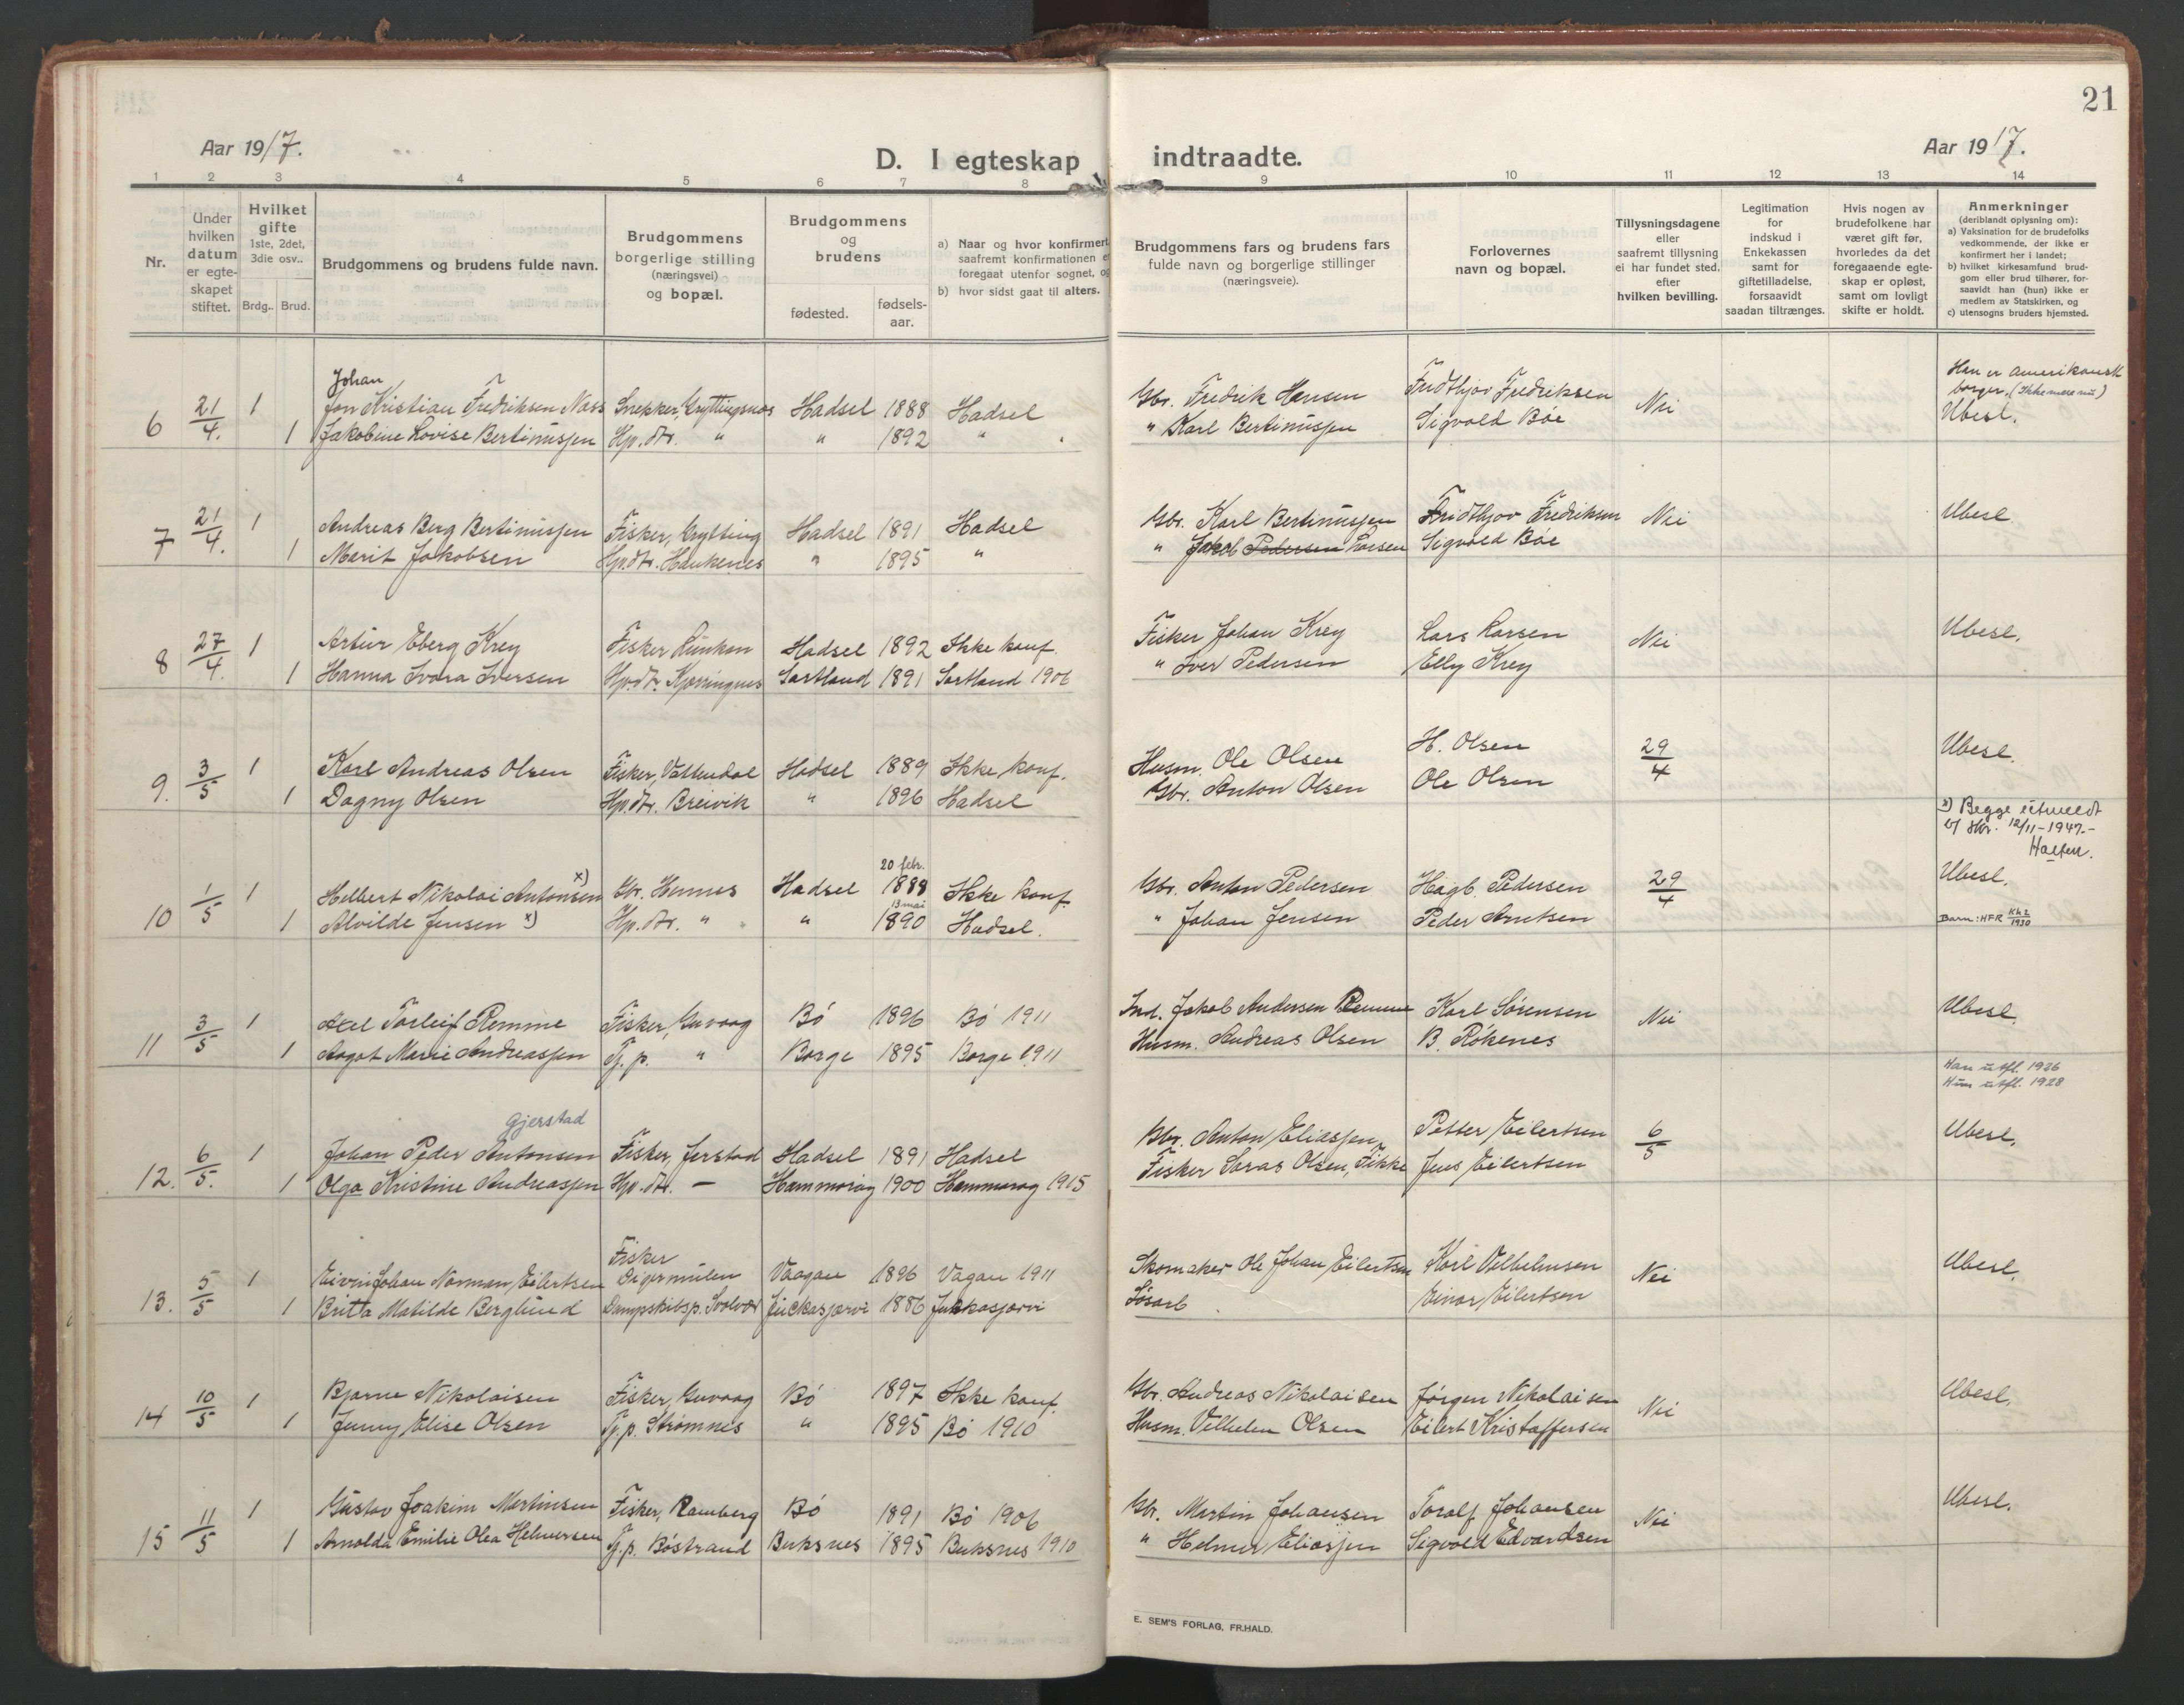 21
Aar 1917.
D. I egteskap indtraadte.
Aar 1917.
1 2 3 4 5 6 7 8 9 10 11 12 13 14
Nr.
Under hvilken datum er egteskapet stiftet.
Hvilket gifte 1ste, 2det, 3die osv..
Brdg.. Brud.
Brudgommens og brudens fulde navn.
Brudgommens borgerlige stilling (næringsvei) og bopæl.
Brudgommens og brudens
fødested.
fødsels-aar.
a) Naar og hvor konfirmert saafremt konfirmationen foregaat utenfor sognet,
b) hvor sidst gaat til alters.
Brudgommens fars og brudens fars fulde navn og borgerlige stillinger (næringsveie).
Forlovernes navn og bopæl.
Tillysningsdagene eller saafremt tillysning ei har fundet sted. efter hvilken bevilling.
Legitimation for indskud i Enkekassen samt for giftetilladelse, forsaavidt saadan tiltrænges.
Hvis nogen av brudefolkene har været gift før, hvorledes da det foregaaende egteskap er opløst, samt om lovligt skifte er holdt.
Anmerkninger (deriblandt oplysning om): a) Vaksination for de brudefolks vedkommende, der ikke er konfirmert her i landet; b) hvilket kirkesamfund brudgom eller brud tilhører, forsaavidt han (hun) ikke er medlem av Statskirken, og c) utensogns bruders hjemsted.
Johan
6 21/4. 1 Jon Kristian Fredriksen Næss Snekker, Gryttingsnæs Hadsel 1888 Hadsel Gbr. Fredrik Hansen Fridthjov Fredriksen Nei Han er amerikansk borger. (Ikke mere nu) Ubesl.
1 Jakobine Lovise Bertinussen Hp. dtr. " " 1892 " " Karl Bertinussen Sigvald Bøe
7 21/4. 1 Andreas Berg Bertinussen Fisker, Grytting Hadsel 1891 Hadsel Gbr. Karl Bertinussen Fridthjov Fredriksen Nei Ubesl.
1 Marit Jakobsen Hp.dtr. Haukenes " 1895 " " Jakob Pedersen Larsen Sigvald Bøe
8 27/4. 1 Artur Eberg Krey Fisker Hadsel 1892 Ikke konf. Fisker Johan Krey Lars Larsen Nei Ubesl.
1 Hanna Ivara Iversen Hp.dtr. Kjørringnes Sortland 1891 Sortland 1906 " Iver Pedersen Elly Krey
9. 3/5 1 Karl Andreas Olsen Fisker, Vattendal Hadsel 1889 Ikke konf. Husm. Ole Olsen H. Olsen 29/4 Ubesl.
1 Dagny Olsen Hp.dtr. Breivik " 1896 Hadsel Gbr. Anton Olsen Ole Olsen
x) Begge utmeldt
12/11-1947.-
10 1/5 1 Helbert Nikolai Antonsen x) Gbr. Hennes Hadsel 20 febr. 1888 Ikke konf. Gbr. Anton Pedersen Hagb. Pedersen 29/4 Ubesl.
1 Alvilde Jensen x) Hp. dtr. " " 13 mai 1890 Hadsel. " Johan Jensen Peder Arntsen Barn: HFR Kh2/1930
11 3/5 1 Axel Torleif Remme Fisker, Guvaag Bø 1896 Bø 1911 Ind. Jakob Andersen Remme Karl Sørensen Nei Ubesl.
1 Aagot Marie Andreassen Tj. p. " Borge 1895 Borge 1911 Husm. Andreas Olsen B. Røkenes
Han utfl. 1926
Hun utfl. 1928
Gjerstad
12. 6/5. 1 Johan Peder Antonsen Fisker, Jerstad Hadsel 1891 Hadsel Gbr. Anton Eliassen, Petter Eilertsen 6/5 Ubesl.
1 Olga Kristine Andreassen Hp. dtr. — Hammerøy 1900 Hammerøy 1915 Fisker Olsen, Jens Eilertsen
13. 5/5 1 Johan Norman Eilertsen Fisker Digermulen Vaagan 1896 Vagan 1911 Skomaker Ole Johan Eilertsen Karl Vilhelmsen Nei Ubesl.
1 Britta Matilde Berglund Dampskibsp. Svolvær Juckasjærvi 1886 Jukkasjarvi Løsarb. Einar Eilertsen
14 10/5 1 Bjarne Nikolaisen Fisker, Guvaag Bø 1897 Ikke konf. Gbr. Andreas Nikolaisen Jørgen Nikolaisen Nei Ubesl.
1 Jenny Elise Olsen Tj. p. Strømnes " 1895 Bø 1910 Husm. Vilhelm Olsen Eilert Kristoffersen
15 11/5 1 Gustav Joakim Martinsen Fisker, Ramberg Bø 1891 Bø 1906 Gbr. Martin Johansen Toralf Johansen Nei Ubesl.
1 Arnolda Emilie Olea Helmersen Tj.p. Bøstrand Buksnes 1895 Buksnes 1910 " Helmer Eliassen Sigvald Edvardsen
E. SEM'S FORLAG, FR.HALD.